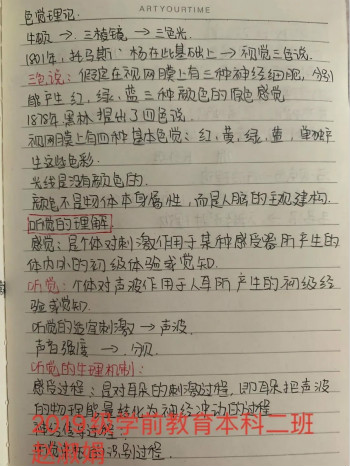 ARTYOURTIME
色觉理论:
牛顿 → 三棱镜 → 三色光
1801年,托马斯·杨在此基础上→视觉三色说.
三色说:假定在视网膜上有三种神经细胞,分别
能产生红,绿,蓝三种颜色的原色感觉
1878年黑林提出了四色说.
视网膜上有四种基本色觉:红,黄,绿,蓝,单独产
生这些色彩.
光线是没有颜色的.
颜色不是物体本身属性,而是人脑的主观建构.
听觉的理解
感觉:是个体对刺激作用于某种感受器所产生的
体内外的初级体验或觉知.
听觉:个体对声波作用于人耳所产生的初级经
验或觉知.
听觉的适宜刺激 → 声波
声音强度 → 分贝
听觉的生理机制:
感受过程:是对耳朵的刺激过程,即耳朵把声波
的物理能量转化为神经冲动的过程
2019级学前教育本科二班
赵淑娟
识别过程.